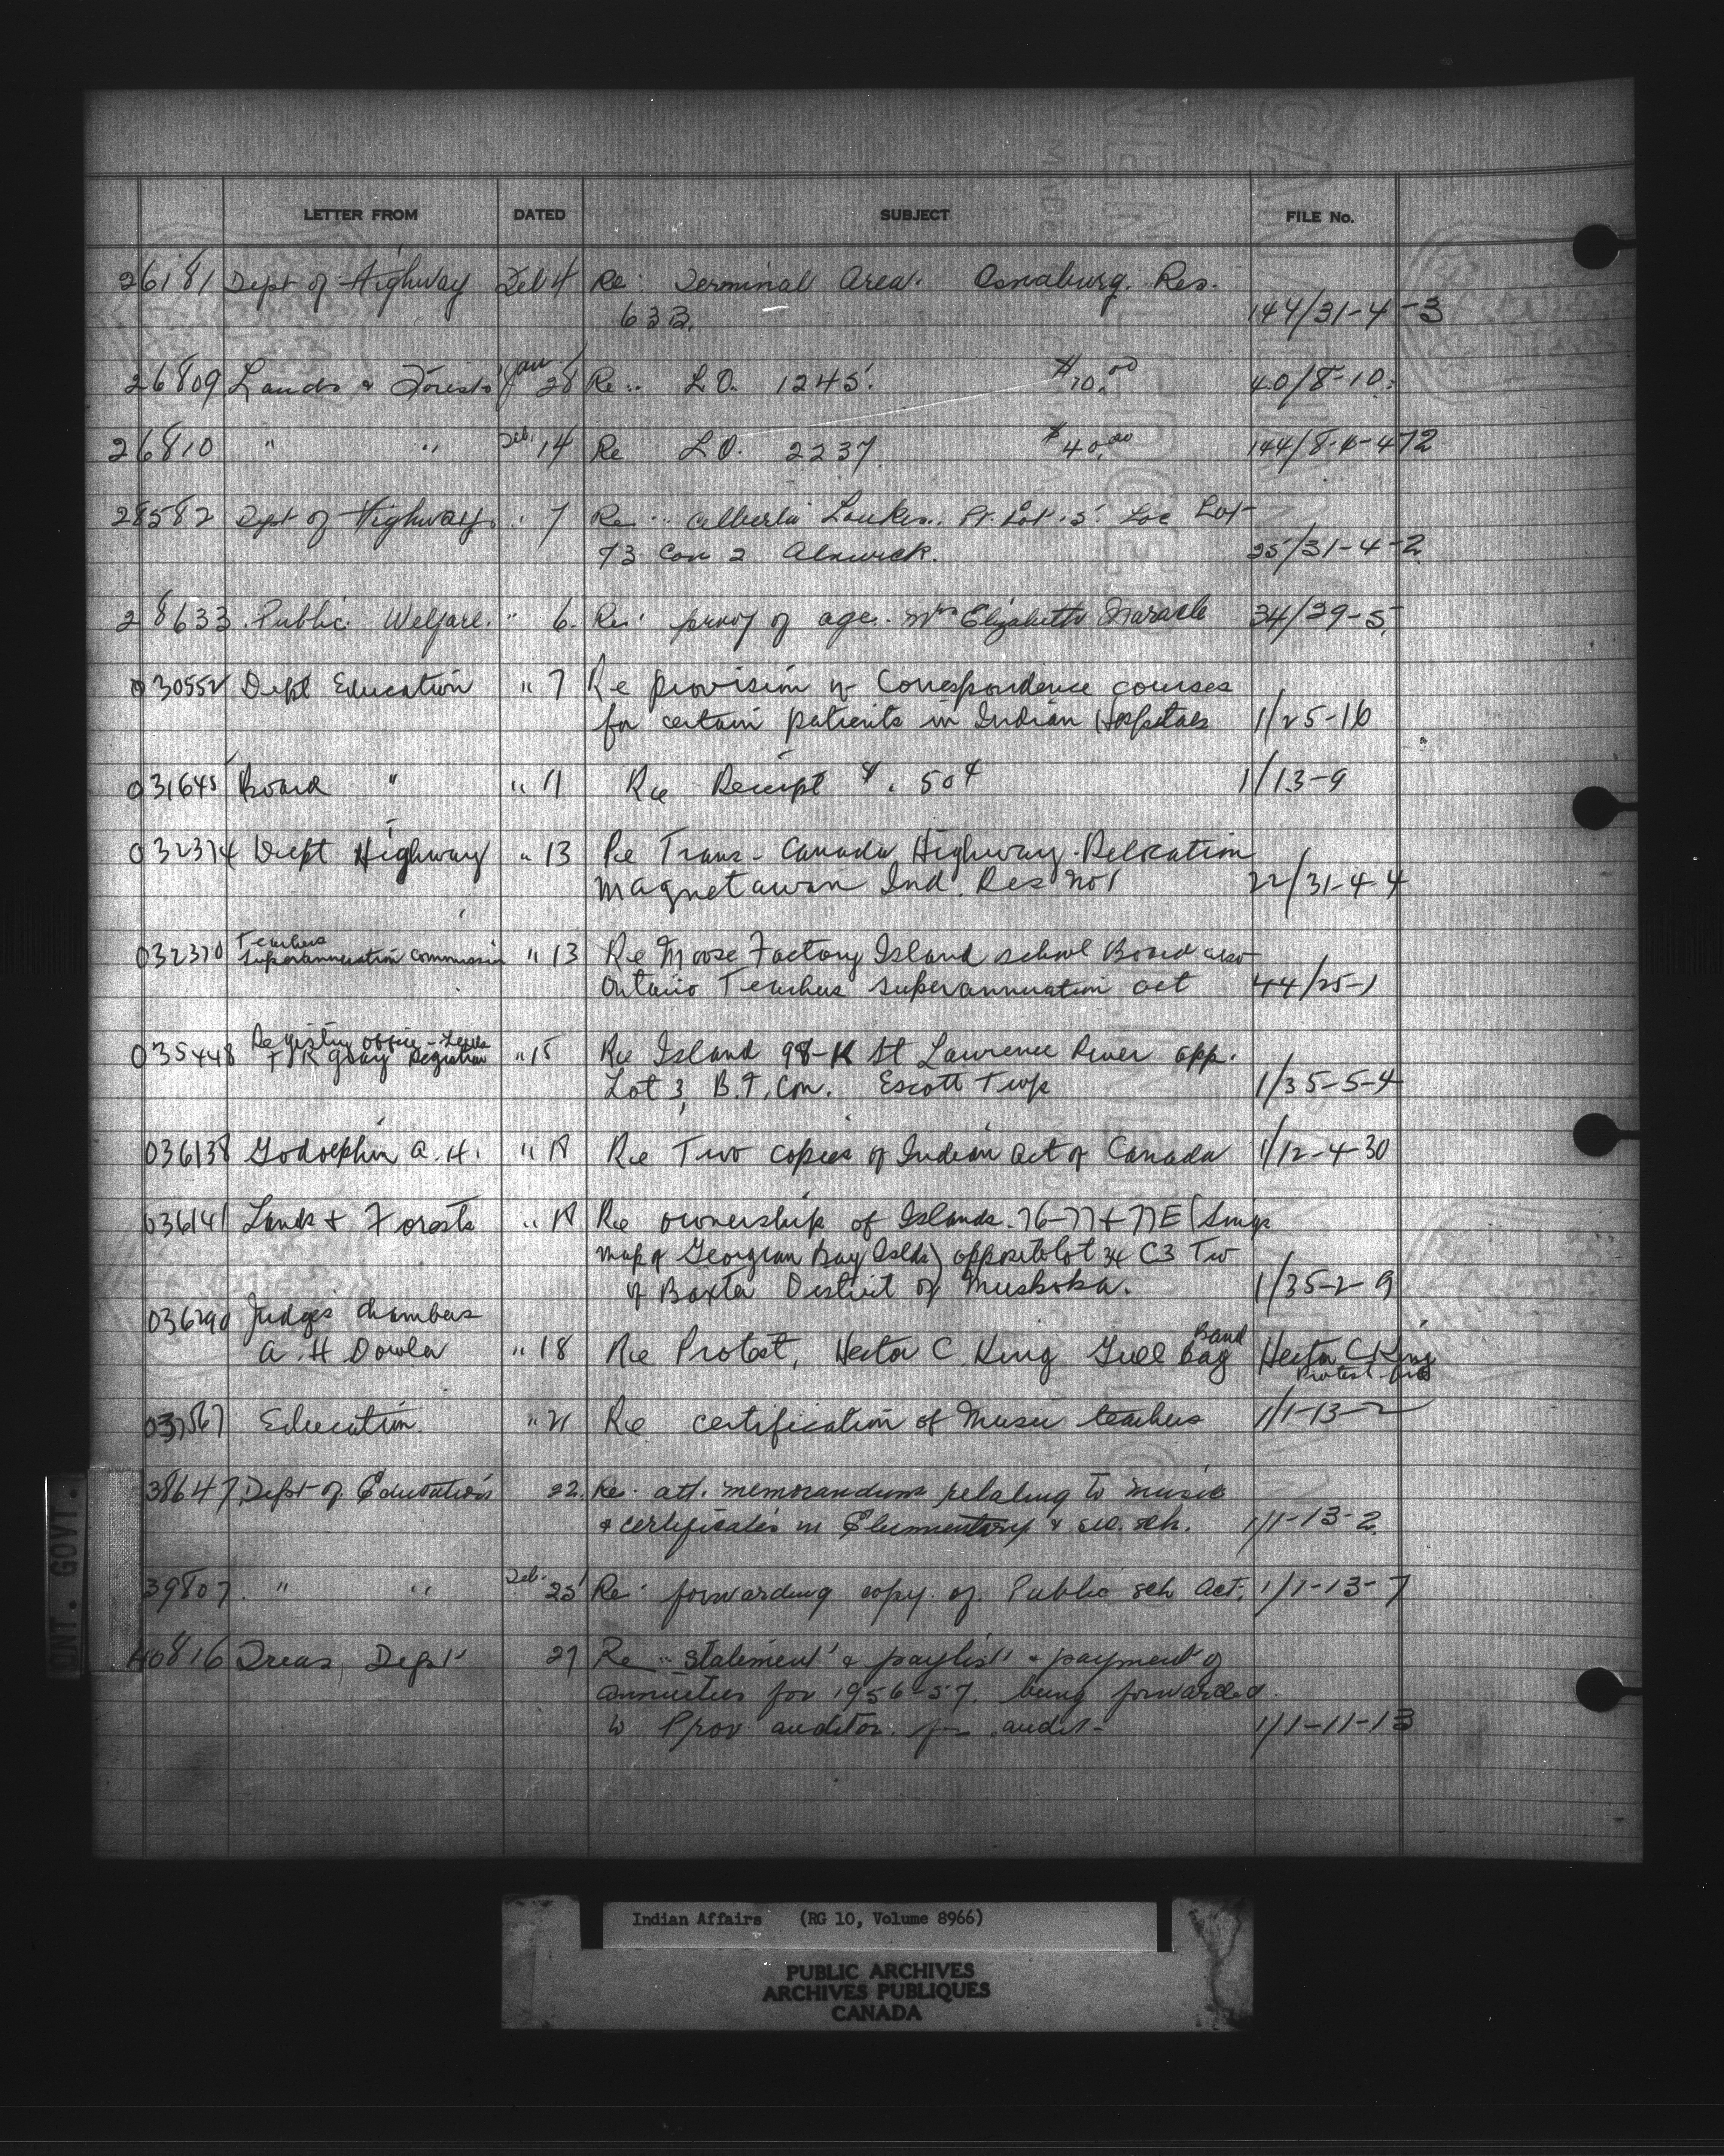 LETTER FROM DATED SUBJECT FILE No.
26181 Dept of Highway Feb 4 Re: Terminal Area. Osnaburg. Res.
63B. 144/31-4-3
26809 Lands & Forests Jan 28 Re: L.O. 1245. $10.00 40/8-10.
26810 " " Feb. 14 Re L.O. 2237 $40.00 144/8-6-472
28582 Dept of Highways " 7 Re: Alberta Loukes. Pt. Lot 5. Loc Lot
73 Con 2 Alnwick. 25/31-4-2
28633 Public Welfare. " 6. Re: proof of age. Mrs Elizabeth Maracle 34/29-5
030552 Dept Education " 7 Re provision of Correspondence courses
for certain patients in Indian Hospitals 1/25-16
031645 Board " " 11 Re Receipt $.50¢ 1/13-9
032374 Dept Highway " 13 Re Trans-Canada Highway-Relocation
Magnetawan Ind. Res No 1 22/31-4-4
Teachers
032370 Superannuation Commission " 13 Re Moose Factory Island school Board also
Ontario Teachers Superannuation act 44/25-1
Registry office - Leeds
035448 Gray Registrar " 15 Re Island 98-K St Lawrence River opp.
Lot 3, B.F. Con. Escott Twp 1/35-5-4
036138 Godolphin A. H. " 18 Re Two copies of Indian Act of Canada 1/12-4-30
036141 Lands & Forests " 18 Re ownership of Islands. 76-77 & 77E
map of Georgian Bay Islds) opposite lot 34 C3 Tw
of Baxter District of Muskoka. 1/35-2-9
036290 Judges Chambers
A. H Dowler " 18 Re Protest, Hector C King Gull Bay Band Hector C King
Protest
037567 Education " 21 Re certification of Music teachers 1/1-13-2
38647 Dept of Education 22. Re: att. memorandum relating to music
& certificates in Elementary & sec. sch. 1/1-13-2
39807. " " Feb. 25 Re: forwarding copy of Public sch Act. 1/1-13-7
40816 Treas. Dept 27 Re: statement & paylist & payment of
annuities for 1956-57. being forwarded.
to Prov auditor. for audit- 1/1-11-13
ONT. GOVT.
Indian Affairs (RG 10, Volume 8966)
PUBLIC ARCHIVES
ARCHIVES PUBLIQUES
CANADA